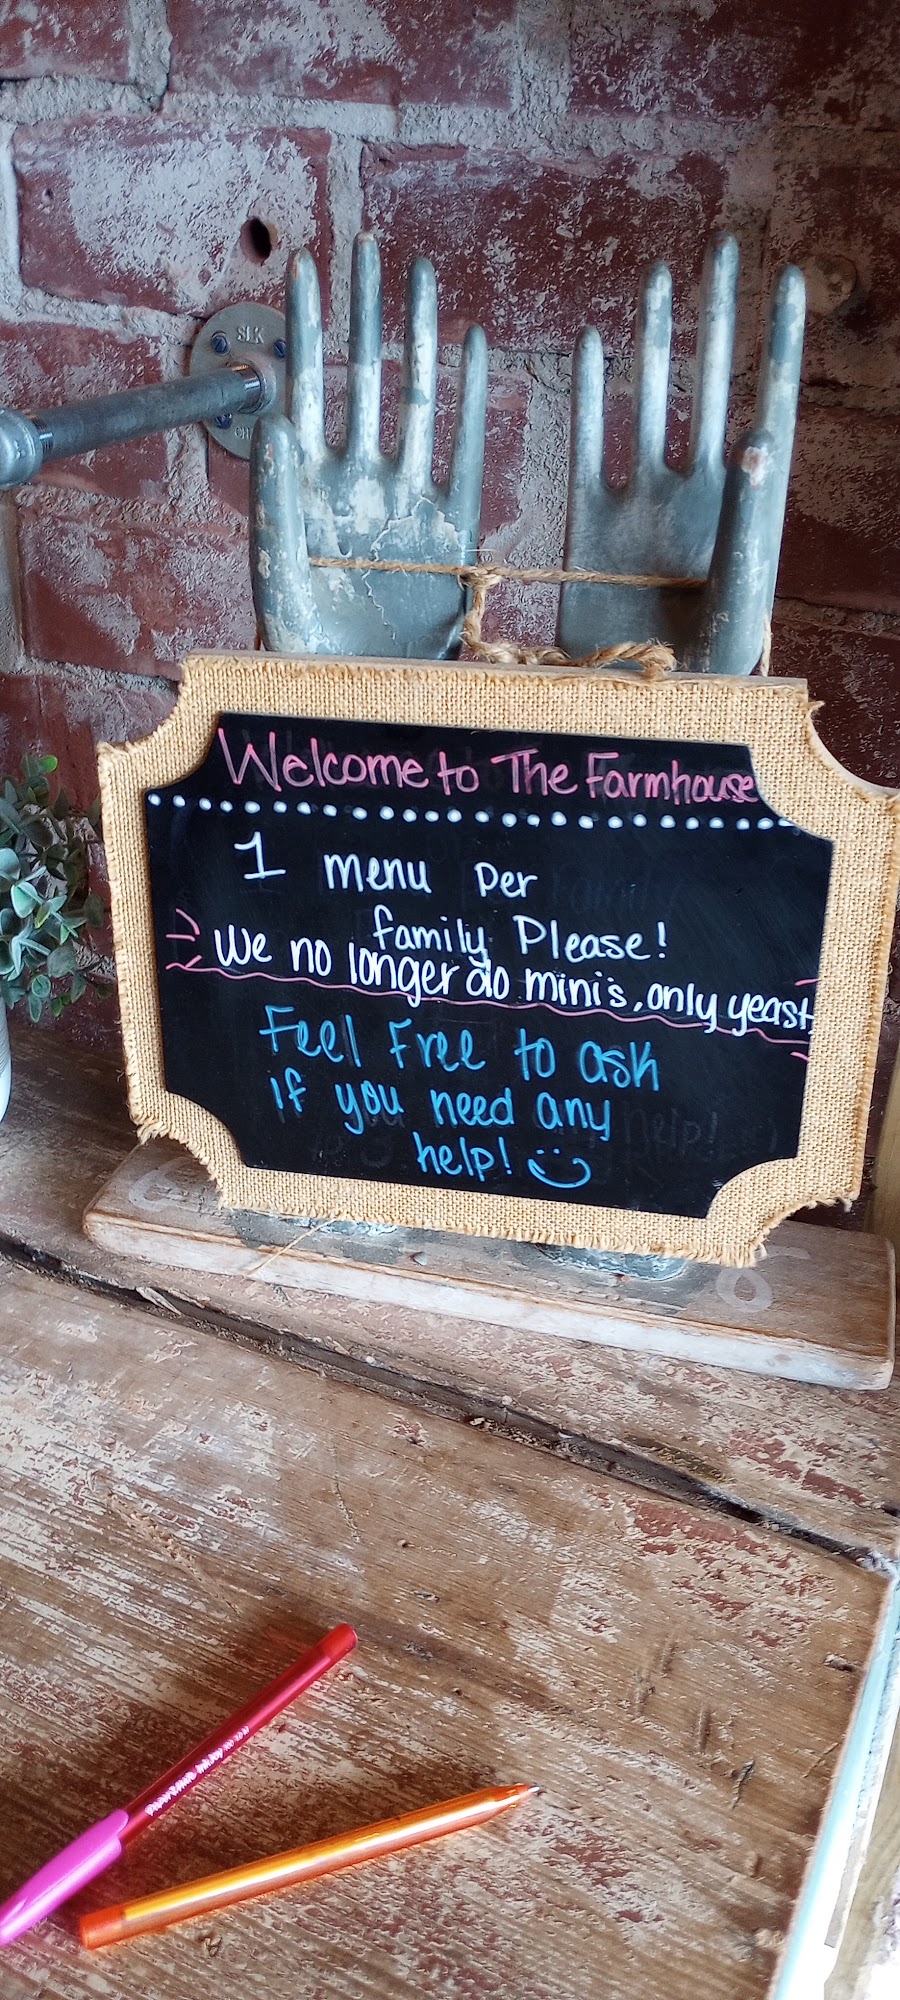 SLK
Welcome to The Farmhouse
1 menu per
family Please!
We no longer do mini's, only yeast
Feel Free to ask
If you need any
help!
help!